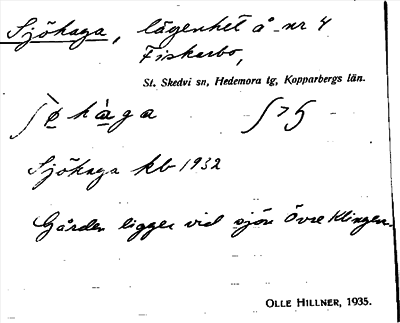 Sjöhaga, lägenhet å nr 4
Fiskarbo,
St. Skedvi sn, Hedemora tg, Kopparbergs län.
Sjöhaga kb 1932
Gården ligger vid sjön Övre Klingen.
OLLE HILLNER, 1935.